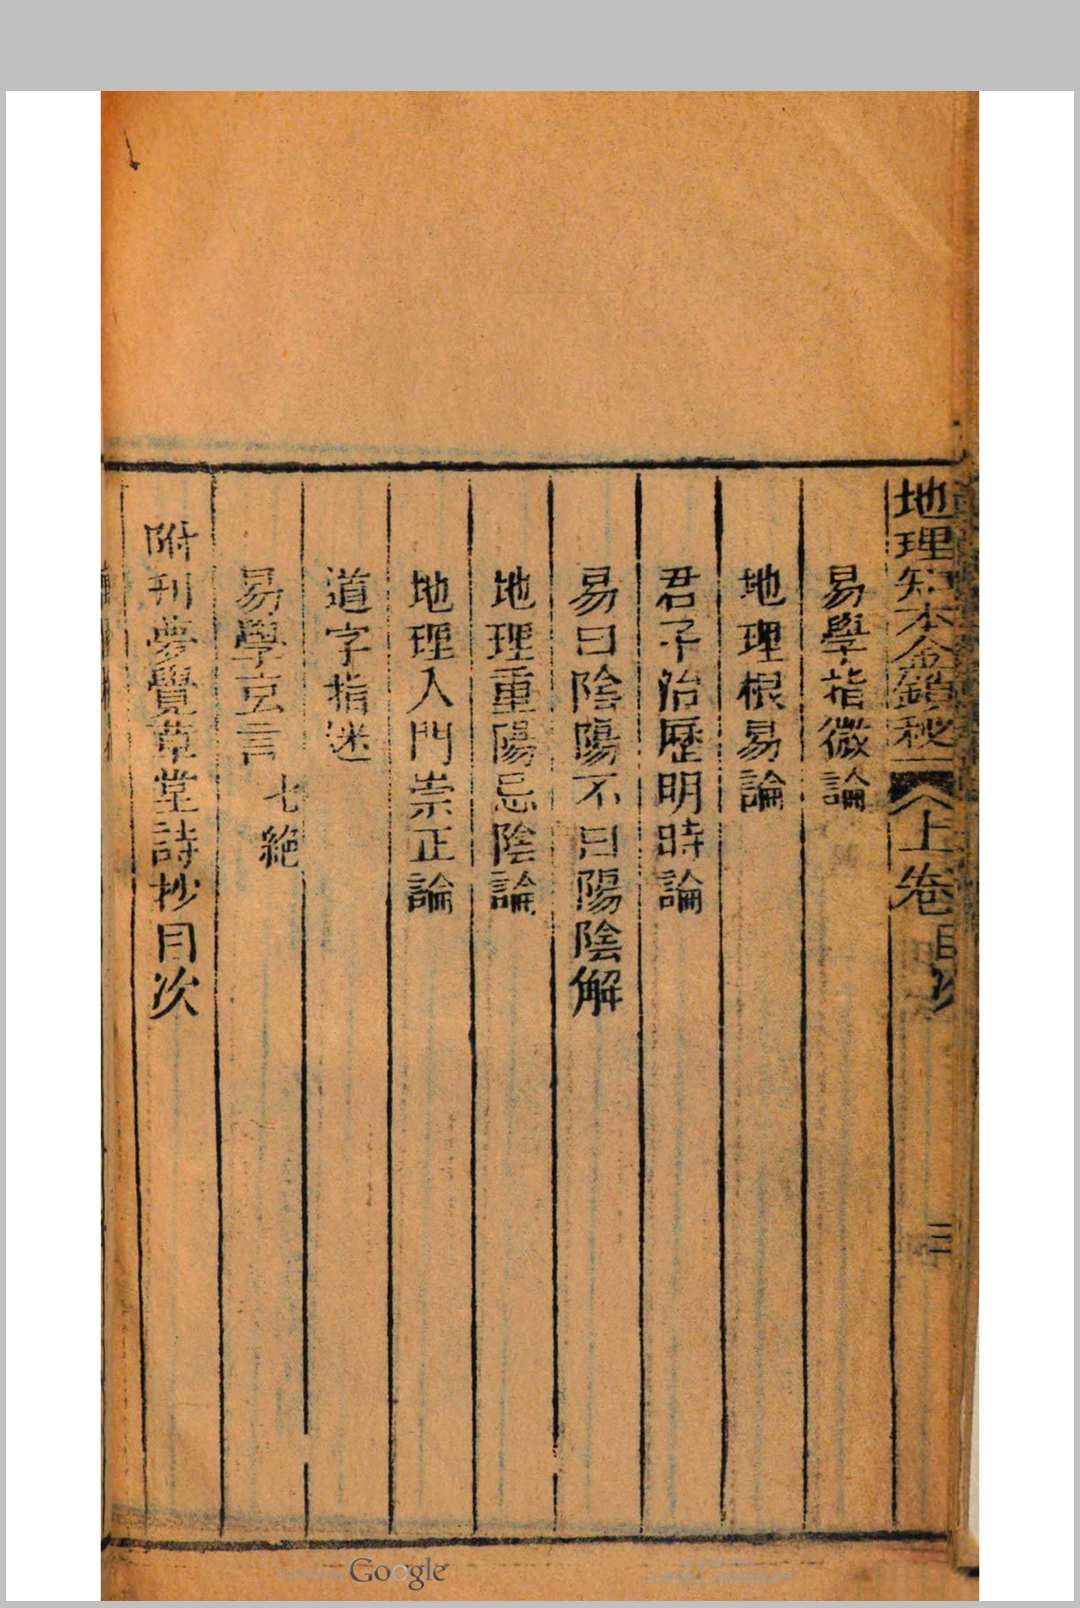 地理知本金鎖秘
上卷目次
三
易學指微論
地理根易論
君子治歷明時論
易曰陰陽不曰陽陰解
地理重陽忌陰論
地理入門崇正論
道字指迷
易學玄言 七絕
附刊夢覺草堂詩抄目次
Google